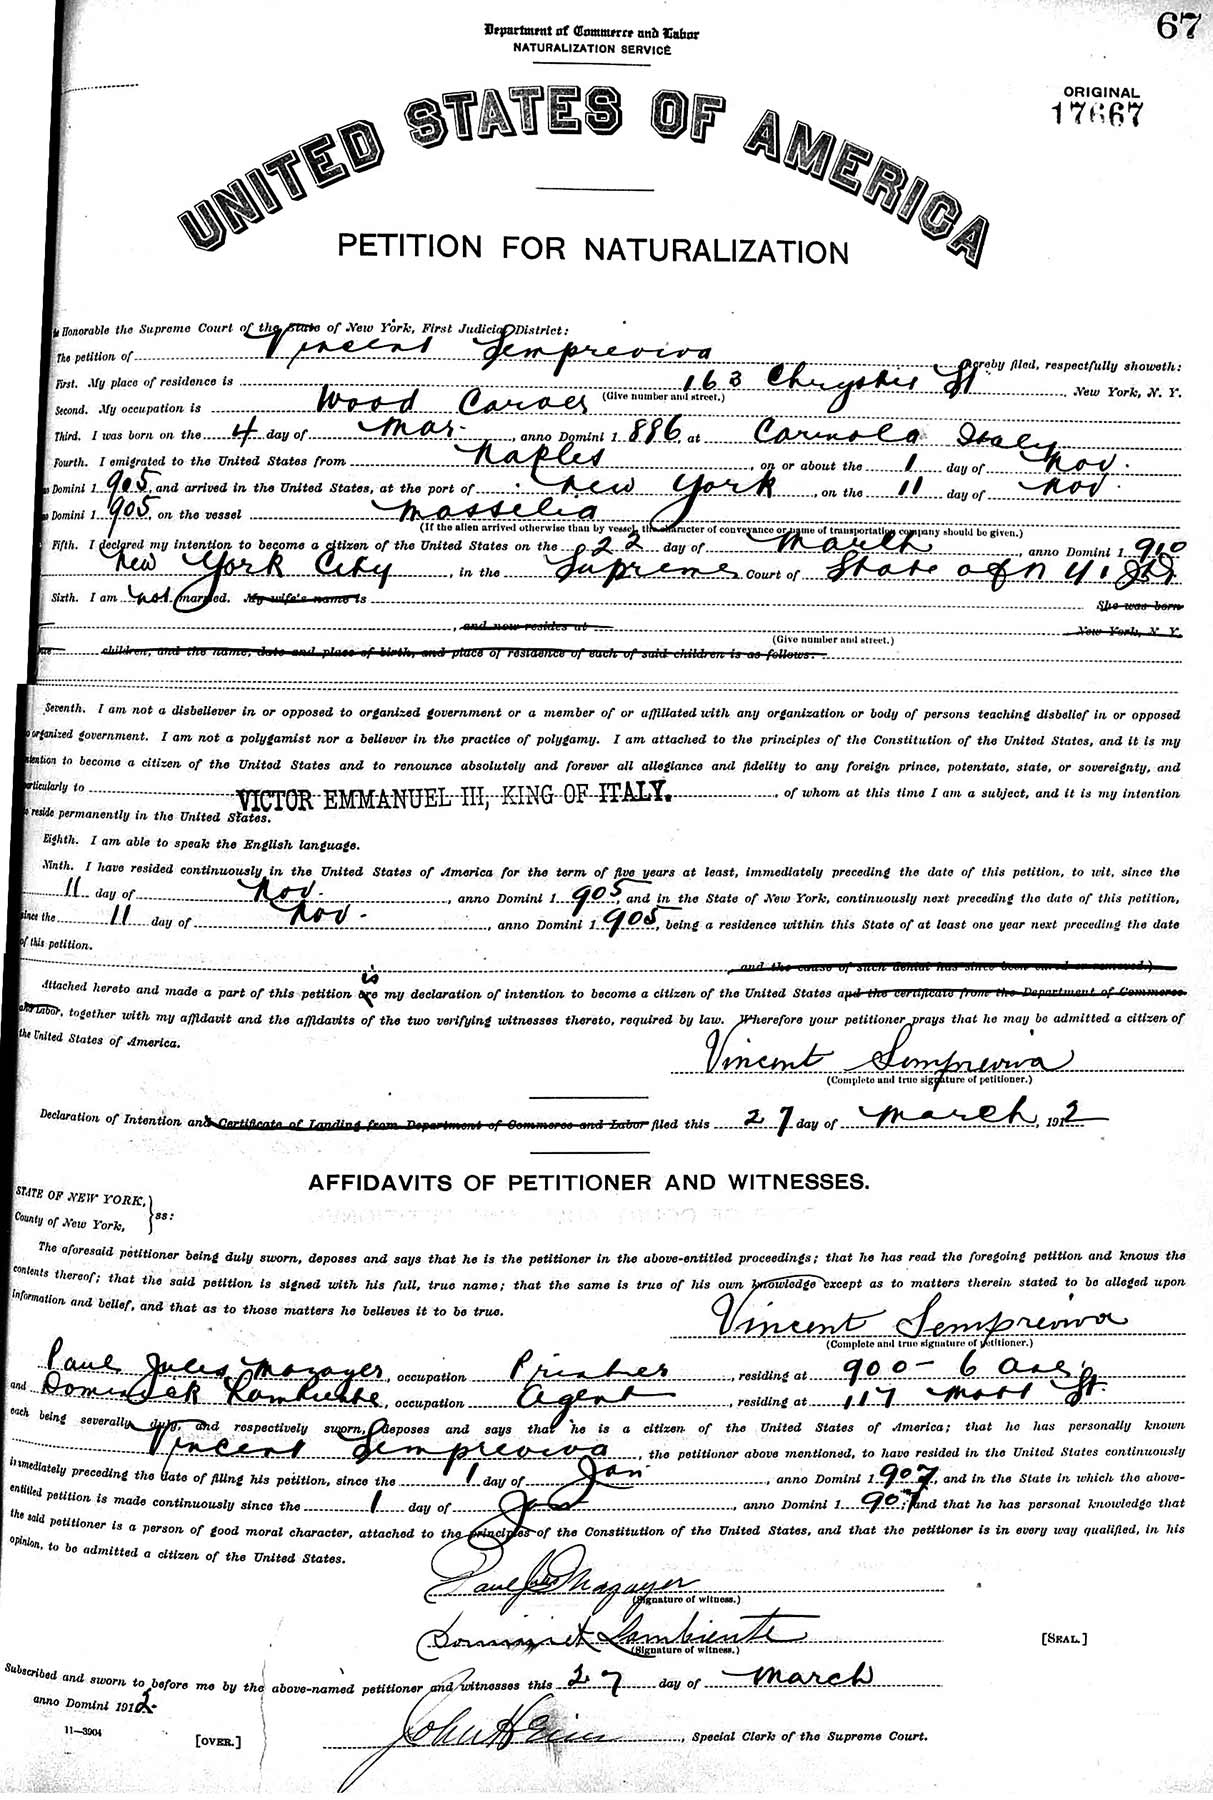 67
Department of Commerce and Labor
NATURALIZATION SERVICE
ORIGINAL
17667
UNITED STATES OF AMERICA
PETITION FOR NATURALIZATION
Honorable the Supreme Court of the State of New York, First Judicial District:
The petition of Vincent Sempreviva hereby filed, respectfully showeth:
First. My place of residence is 163 Chrystie St New York, N. Y.
(Give number and street.)
Second. My occupation is Wood Carver
Third. I was born on the 4 day of Mar. , anno Domini 1 886, at Carinola Italy
Fourth. I emigrated to the United States from Naples , on or about the 1 day of Nov.
Domini 1 905, and arrived in the United States, at the port of New York , on the 11 day of Nov.
Domini 1 905, on the vessel Massilia
(If the alien arrived otherwise than by vessel, the character of conveyance or name of transportation company should be given.)
Fifth. I declared my intention to become a citizen of the United States on the 22 day of March , anno Domini 1 910
New York City , in the Supreme Court of State of N Y.
Sixth. I am not married. My wife's name is She was born
, and now resides at New York, N. Y.
(Give number and street.)
children, and the name, date and place of birth, and place of residence of each of said children is as follows:
Seventh. I am not a disbeliever in or opposed to organized government or a member of or affiliated with any organization or body of persons teaching disbelief in or opposed
organized government. I am not a polygamist nor a believer in the practice of polygamy. I am attached to the principles of the Constitution of the United States, and it is my
intention to become a citizen of the United States and to renounce absolutely and forever all allegiance and fidelity to any foreign prince, potentate, state, or sovereignty, and
particularly to VICTOR EMMANUEL III, KING OF ITALY. , of whom at this time I am a subject, and it is my intention
to reside permanently in the United States.
Eighth. I am able to speak the English language.
Ninth. I have resided continuously in the United States of America for the term of five years at least, immediately preceding the date of this petition, to wit, since the
11 day of Nov. , anno Domini 1 905, and in the State of New York, continuously next preceding the date of this petition,
since the 11 day of Nov. , anno Domini 1 905, being a residence within this State of at least one year next preceding the date
of this petition.
and the cause of such denial has since been cured or removed.)
is
Attached hereto and made a part of this petition are my declaration of intention to become a citizen of the United States and the certificate from the Department of Commerce
and Labor, together with my affidavit and the affidavits of the two verifying witnesses thereto, required by law. Wherefore your petitioner prays that he may be admitted a citizen of
the United States of America.
Vincent Sempreviva
(Complete and true signature of petitioner.)
Declaration of Intention and Certificate of Landing from Department of Commerce and Labor filed this 27 day of March , 1912
AFFIDAVITS OF PETITIONER AND WITNESSES.
STATE OF NEW YORK,
County of New York, } ss:
The aforesaid petitioner being duly sworn, deposes and says that he is the petitioner in the above-entitled proceedings; that he has read the foregoing petition and knows the
contents thereof; that the said petition is signed with his full, true name; that the same is true of his own knowledge except as to matters therein stated to be alleged upon
information and belief, and that as to those matters he believes it to be true.
Vincent Sempreviva
(Complete and true signature of petitioner.)
Paul Jules Mazayer , occupation Printer , residing at 900 - 6 Ave.
and Dominick Lambiente , occupation Agent , residing at 117 Mott St.
each being severally, duly, and respectively sworn, deposes and says that he is a citizen of the United States of America; that he has personally known
Vincent Sempreviva , the petitioner above mentioned, to have resided in the United States continuously
immediately preceding the date of filing his petition, since the 1 day of Jan , anno Domini 1 907, and in the State in which the above-
entitled petition is made continuously since the 1 day of Jan , anno Domini 1 907; and that he has personal knowledge that
the said petitioner is a person of good moral character, attached to the principles of the Constitution of the United States, and that the petitioner is in every way qualified, in his
opinion, to be admitted a citizen of the United States.
Paul Jules Mazayer
(Signature of witness.)
Dominick Lambiente
(Signature of witness.)
[SEAL.]
Subscribed and sworn to before me by the above-named petitioner and witnesses this 27 day of March
anno Domini 1912.
11—3904
[OVER.]
John H , Special Clerk of the Supreme Court.